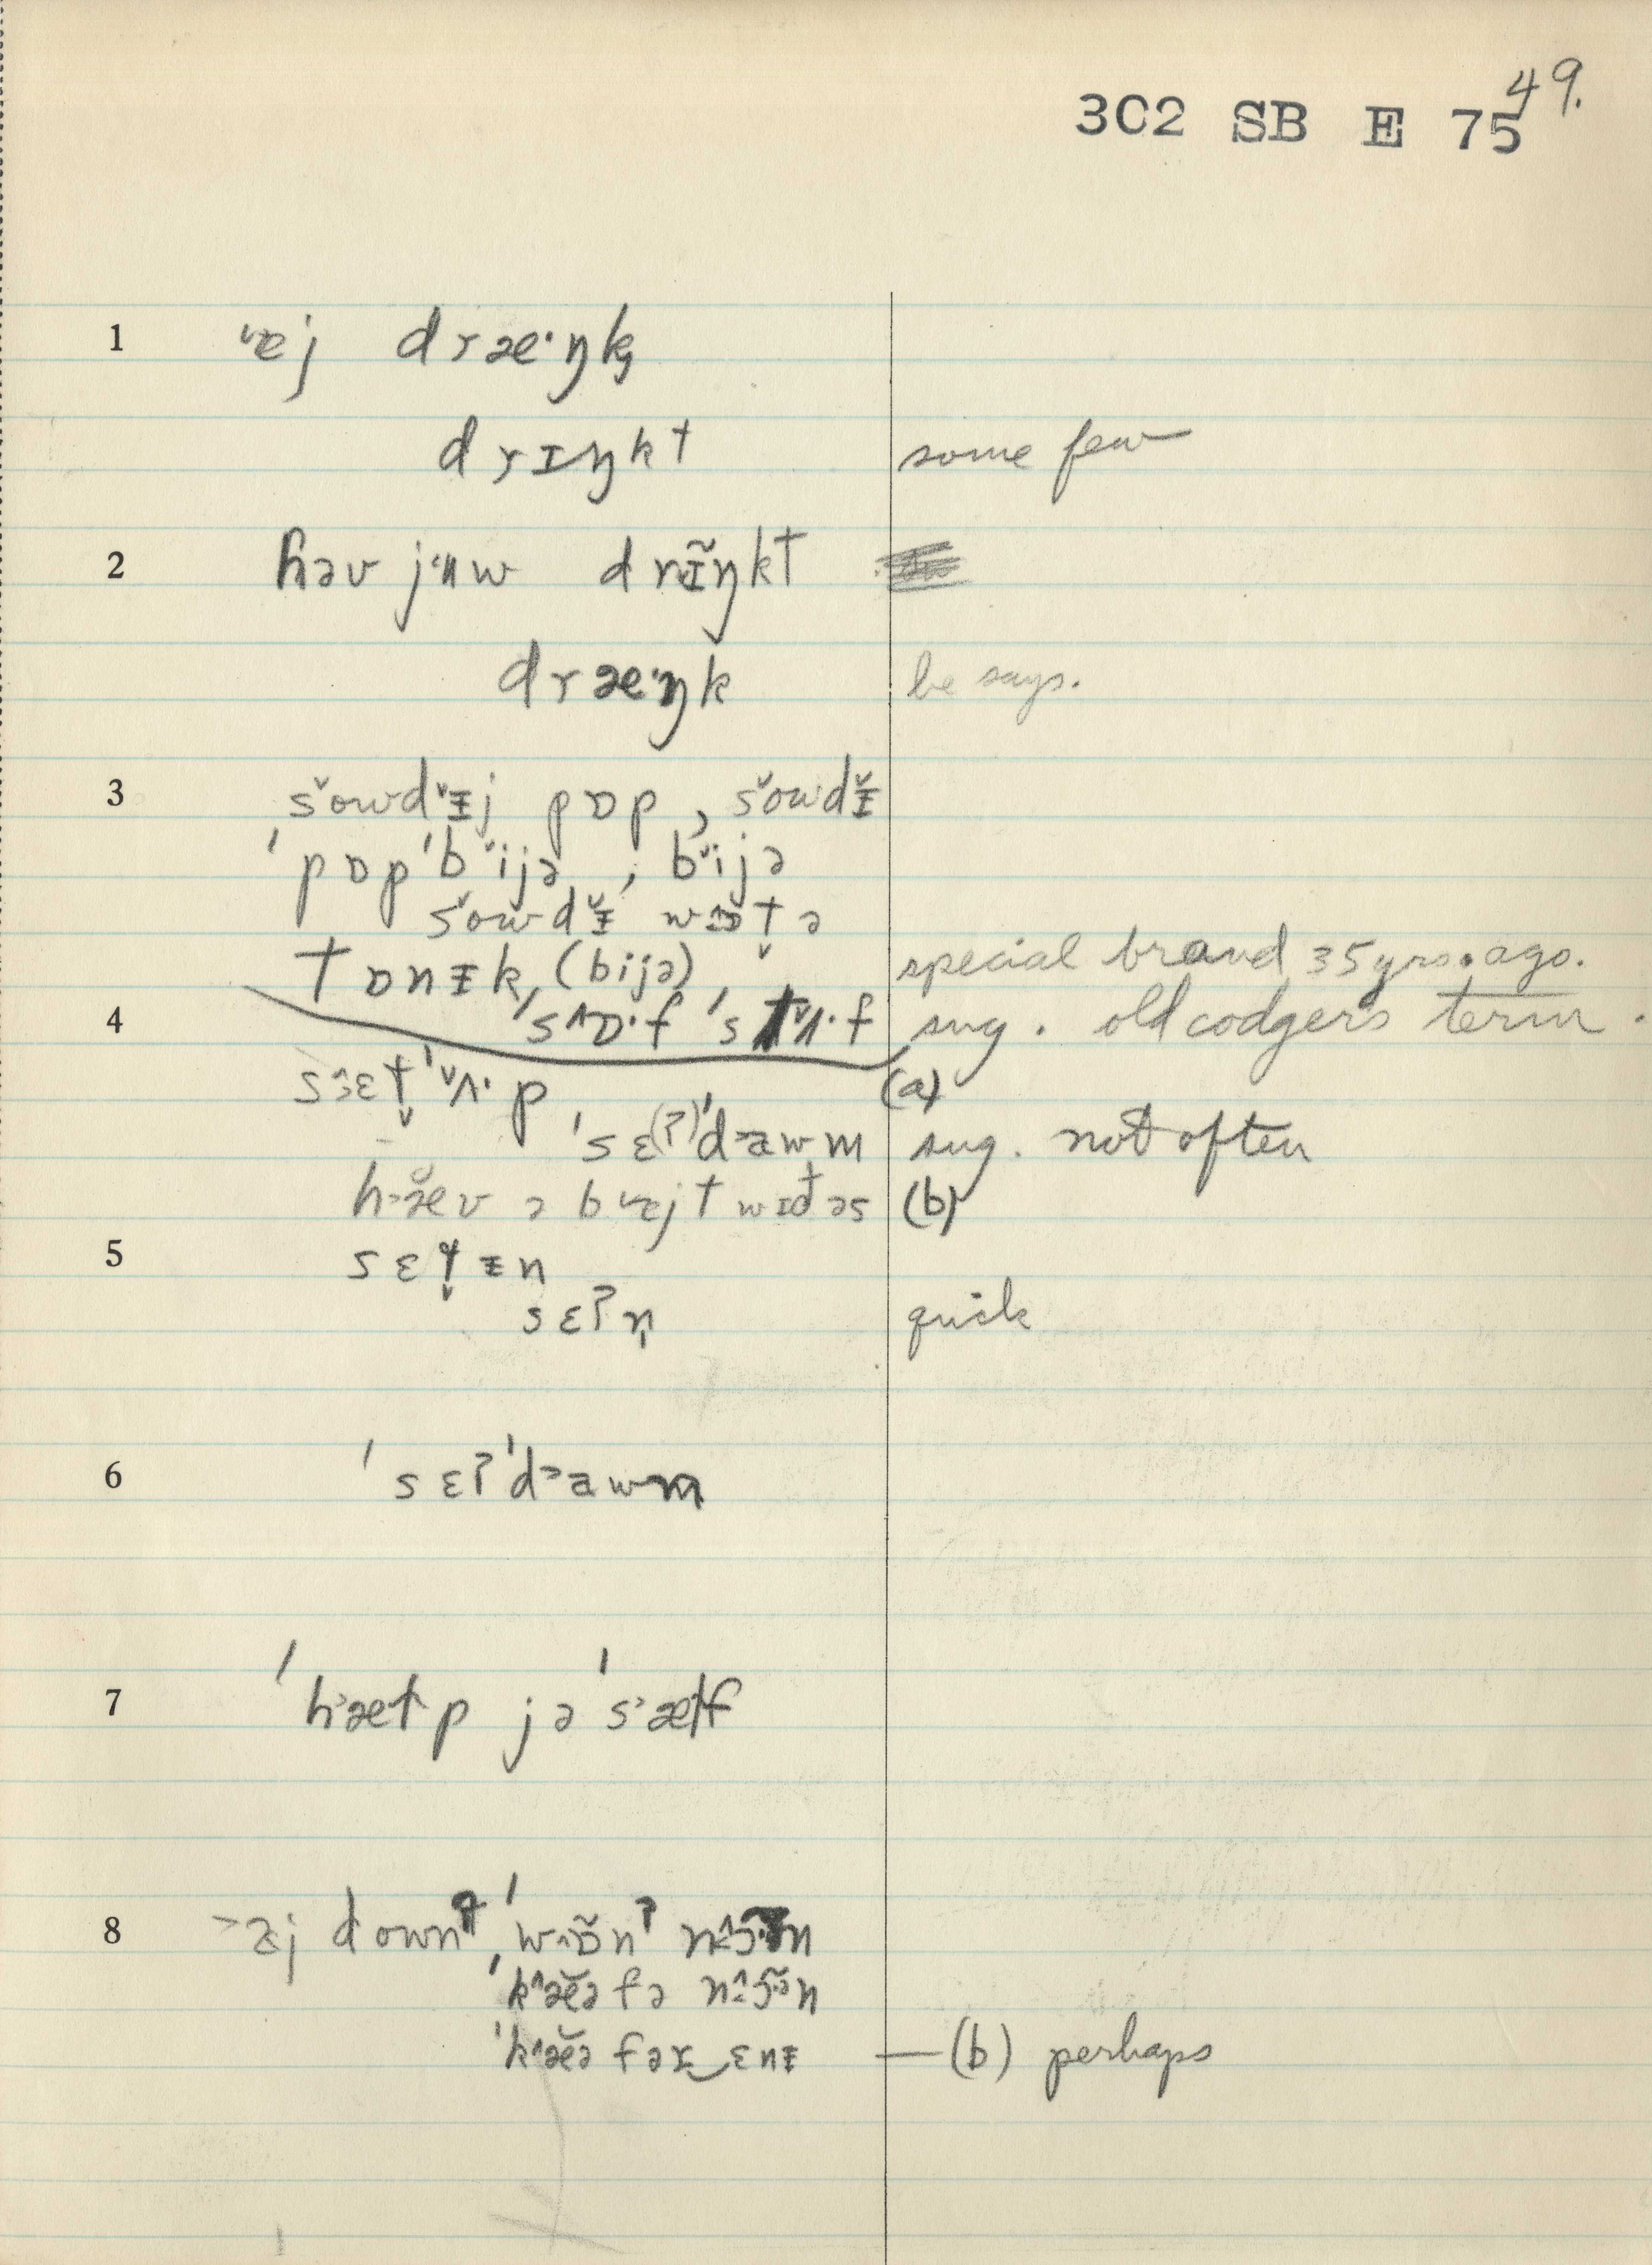 49.
3C2 SB E 75
1 ˈɐj dræ·ŋk
drɪŋkt some few
2 həv jʉw drɪ̃ŋkt
dræ·ŋk he says.
3 sˇowdˇᵻj pɒp, sˇowdᵻ̌
ˈpɒpˈbˇijə, bˇijə
sˇowdᵻ̌ wɔt̬ə
tɒnᵻk (bijə) special brand 35 yrs. ago.
4 ˈs^ɒ·f ˈstˇʌ·f sug. old codger's term.
sɛt̬ˈˇʌ·p (a)
ˈsɛ(ʔ)ˈd˃awm sug. not often
h˃æ̆v ə bɐjt wɪd əs (b)
5 sɛt̬ᵻn
sɛʔn̩ quick
6 ˈsɛʔˈd˃awm
7 ˈh˃æɫp jəˈs˃æɫf
8 ˃aj downʔ, ˈw^ɒ̃nʔ n^ɔ̃n
ˈk^æ̆ə fə n^ɔ̃ən
ˈk^æ̆ə fər‿ɛnᵻ — (b) perhaps